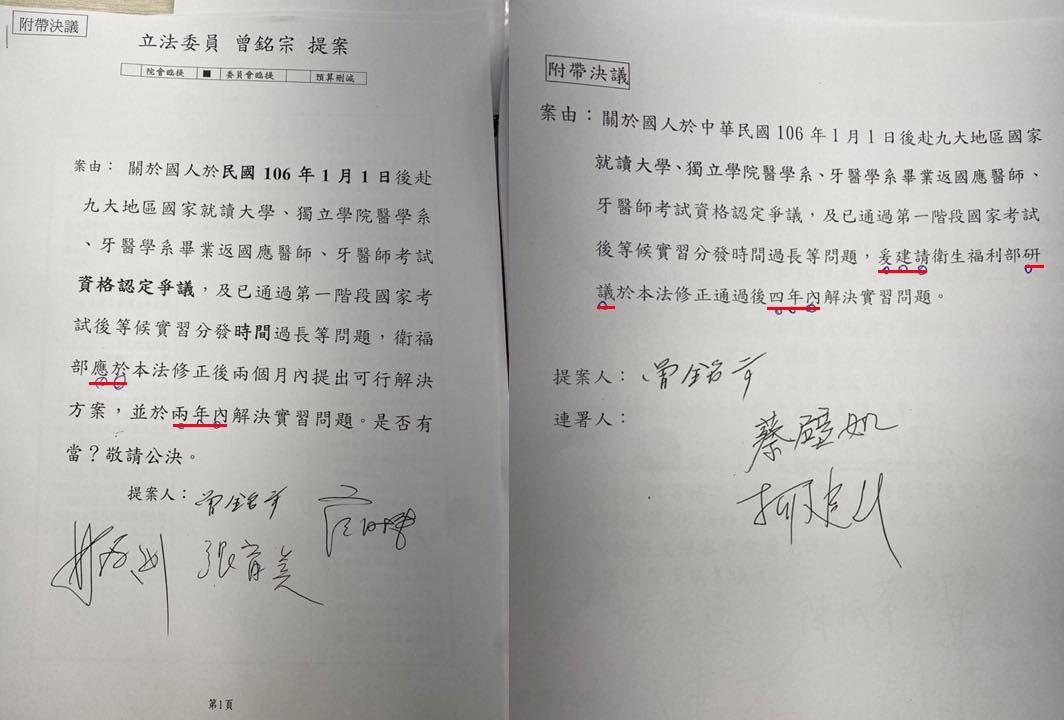 附帶決議
立法委員 曾銘宗 提案
院會臨提 ■ 委員會臨提 預算刪減
案由： 關於國人於民國 106 年 1 月 1 日後赴
九大地區國家就讀大學、獨立學院醫學系
、牙醫學系畢業返國應醫師、牙醫師考試
資格認定爭議，及已通過第一階段國家考
試後等候實習分發時間過長等問題，衛福
部應於本法修正後兩個月內提出可行解決
方案，並於兩年內解決實習問題。是否有
當？敬請公決。
提案人： 曾銘宗
張育美
第1頁
附帶決議
案由：關於國人於中華民國 106 年 1 月 1 日後赴九大地區國家
就讀大學、獨立學院醫學系、牙醫學系畢業返國應醫師、
牙醫師考試資格認定爭議，及已通過第一階段國家考試
後等候實習分發時間過長等問題，爰建請衛生福利部研
議於本法修正通過後四年內解決實習問題。
提案人： 曾銘宗
連署人：
蔡壁如
柯建銘